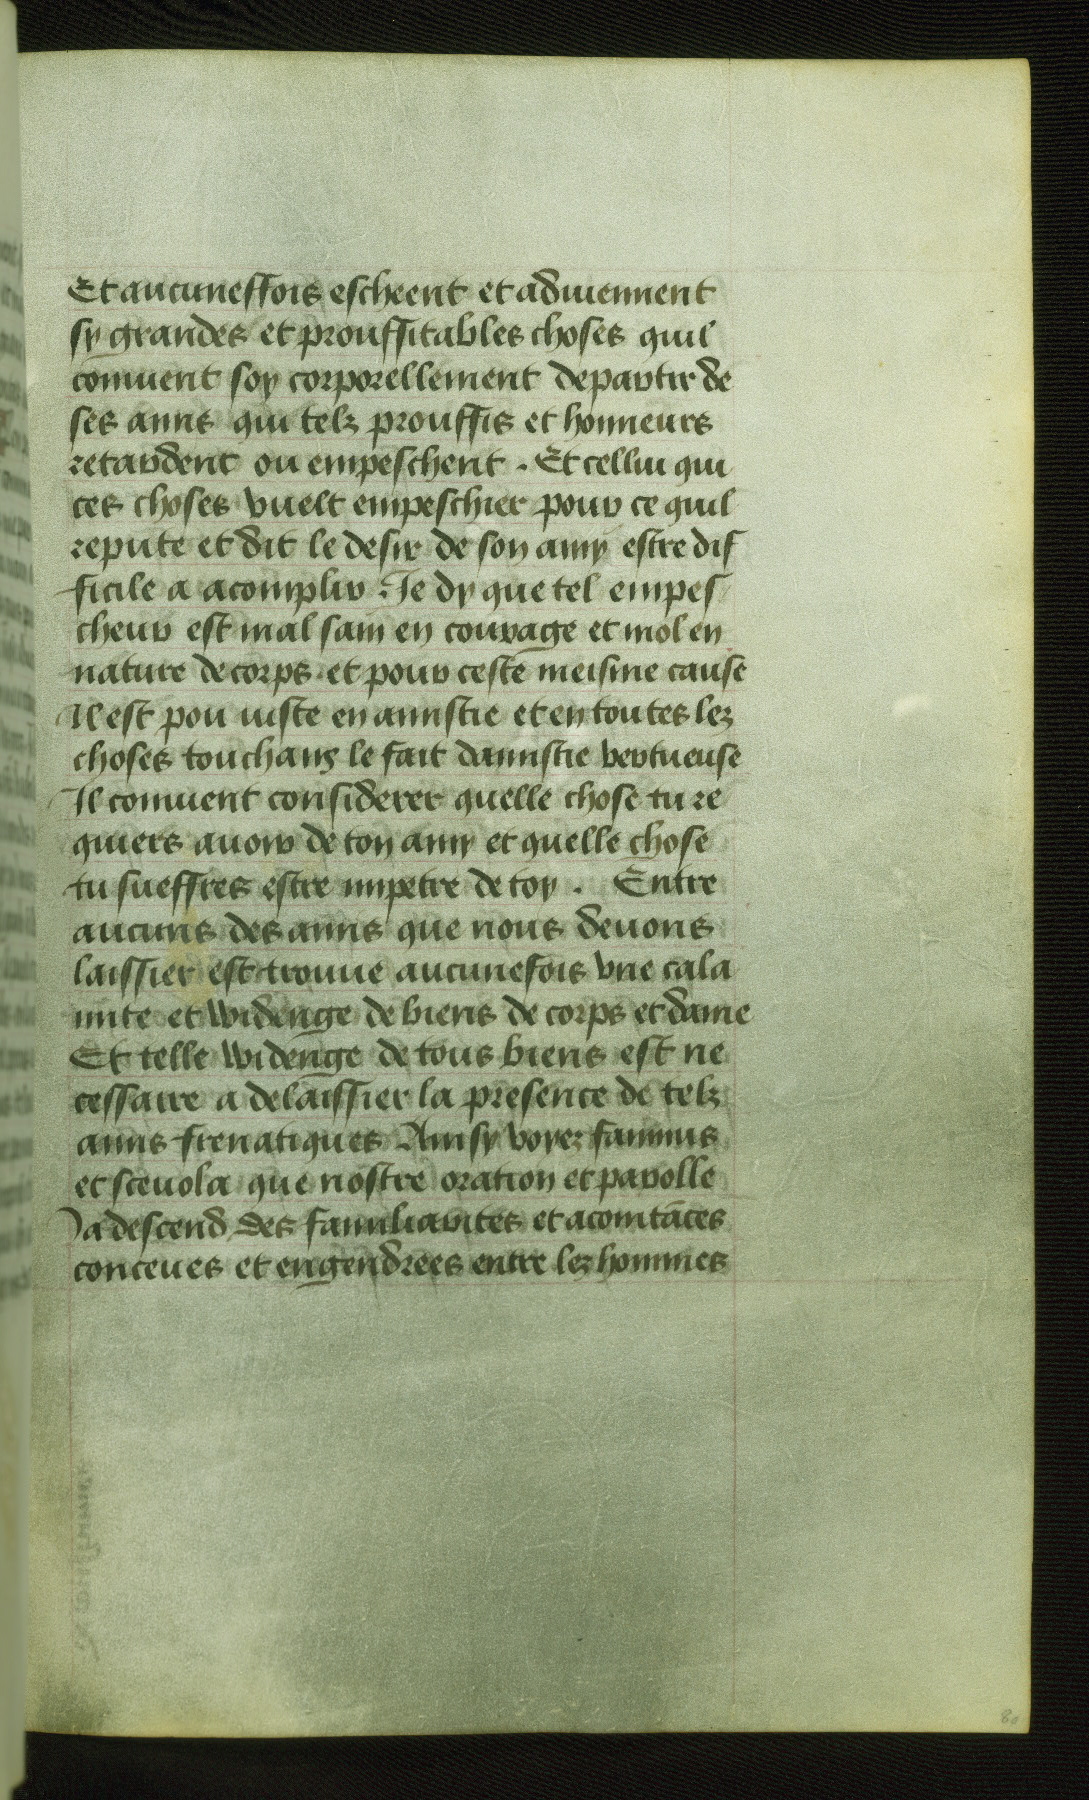 Et aucuneffois escheent et aduiennent
sy grandes et prouffitables choses quil
conuient soy corporellement departir de
ses amis qui telz prouffis et honneurs
retardent ou empeschent. Et cellui qui
ces choses vuelt empeschier pour ce quil
repute et dit le desir de son amy estre dif
ficile a acomplir. Je dy que tel empes
cheur est mal sain en courage et mol en
nature de corps et pour ceste meisme cause
Il est pou iuste en amistie et en toutes lez
choses touchans le fait damistie vertueuse
Il conuient considerer quelle chose tu re
quiers auoir de ton amy et quelle chose
tu sueffres estre impetre de toy. Entre
aucuns des amis que nous deuons
laissier est trouue aucunefois vne cala
mite et widenge de biens de corps et dame
Et telle widenge de tous biens est ne
cessaire a delaissier la presence de telz
amis frenatiques Ainsy voyez fannius
et sceuola que nostre oration et parolle
Ja descend des familiarites et acointāces
conceues et engendrees entre lez hommes
80